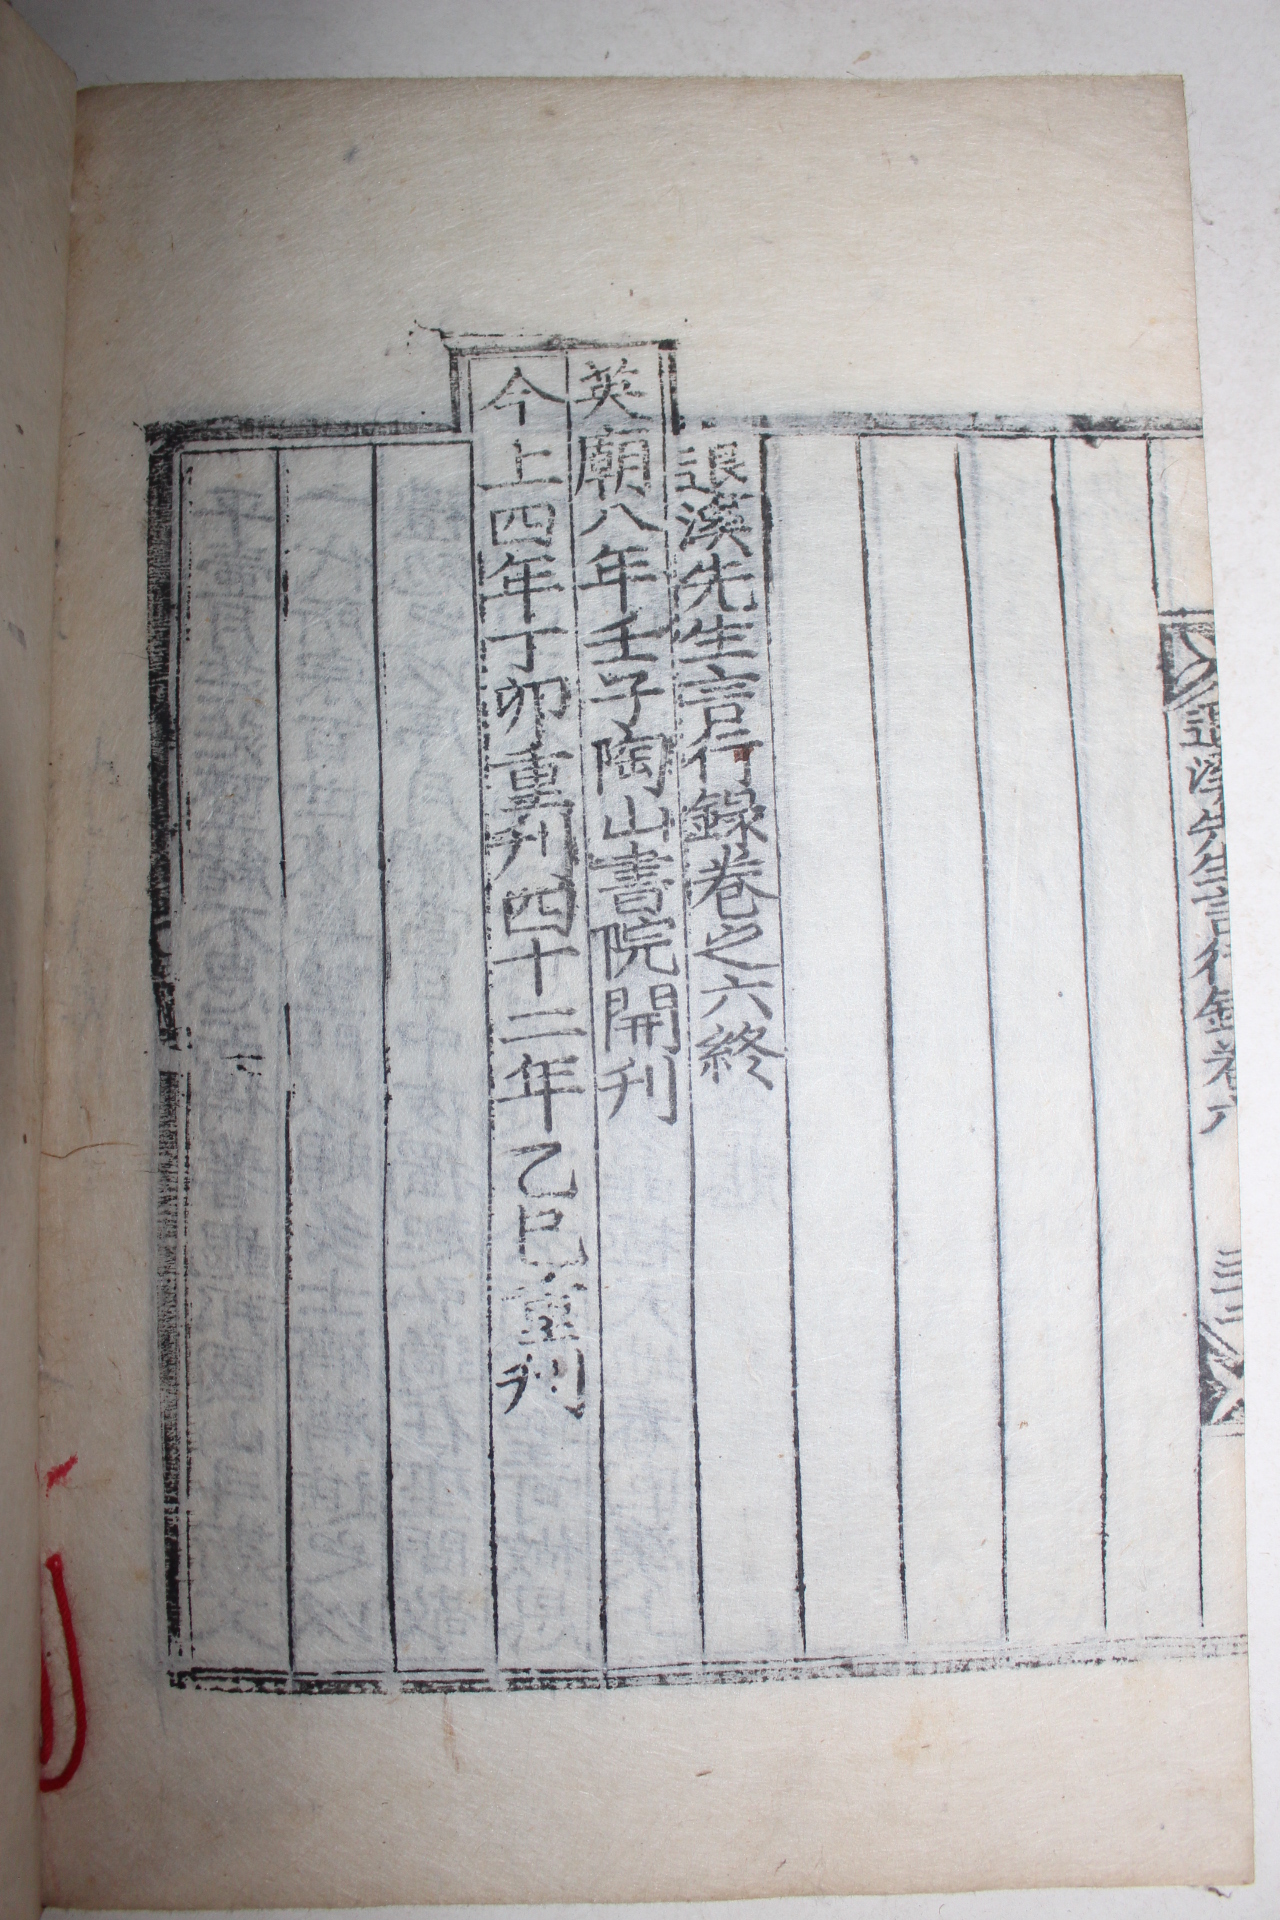 退溪先生言行錄卷六
三十二
退溪先生言行錄卷之六終
英廟八年壬子陶山書院開刊
今上四年丁卯重刋四十二年乙巳重刋